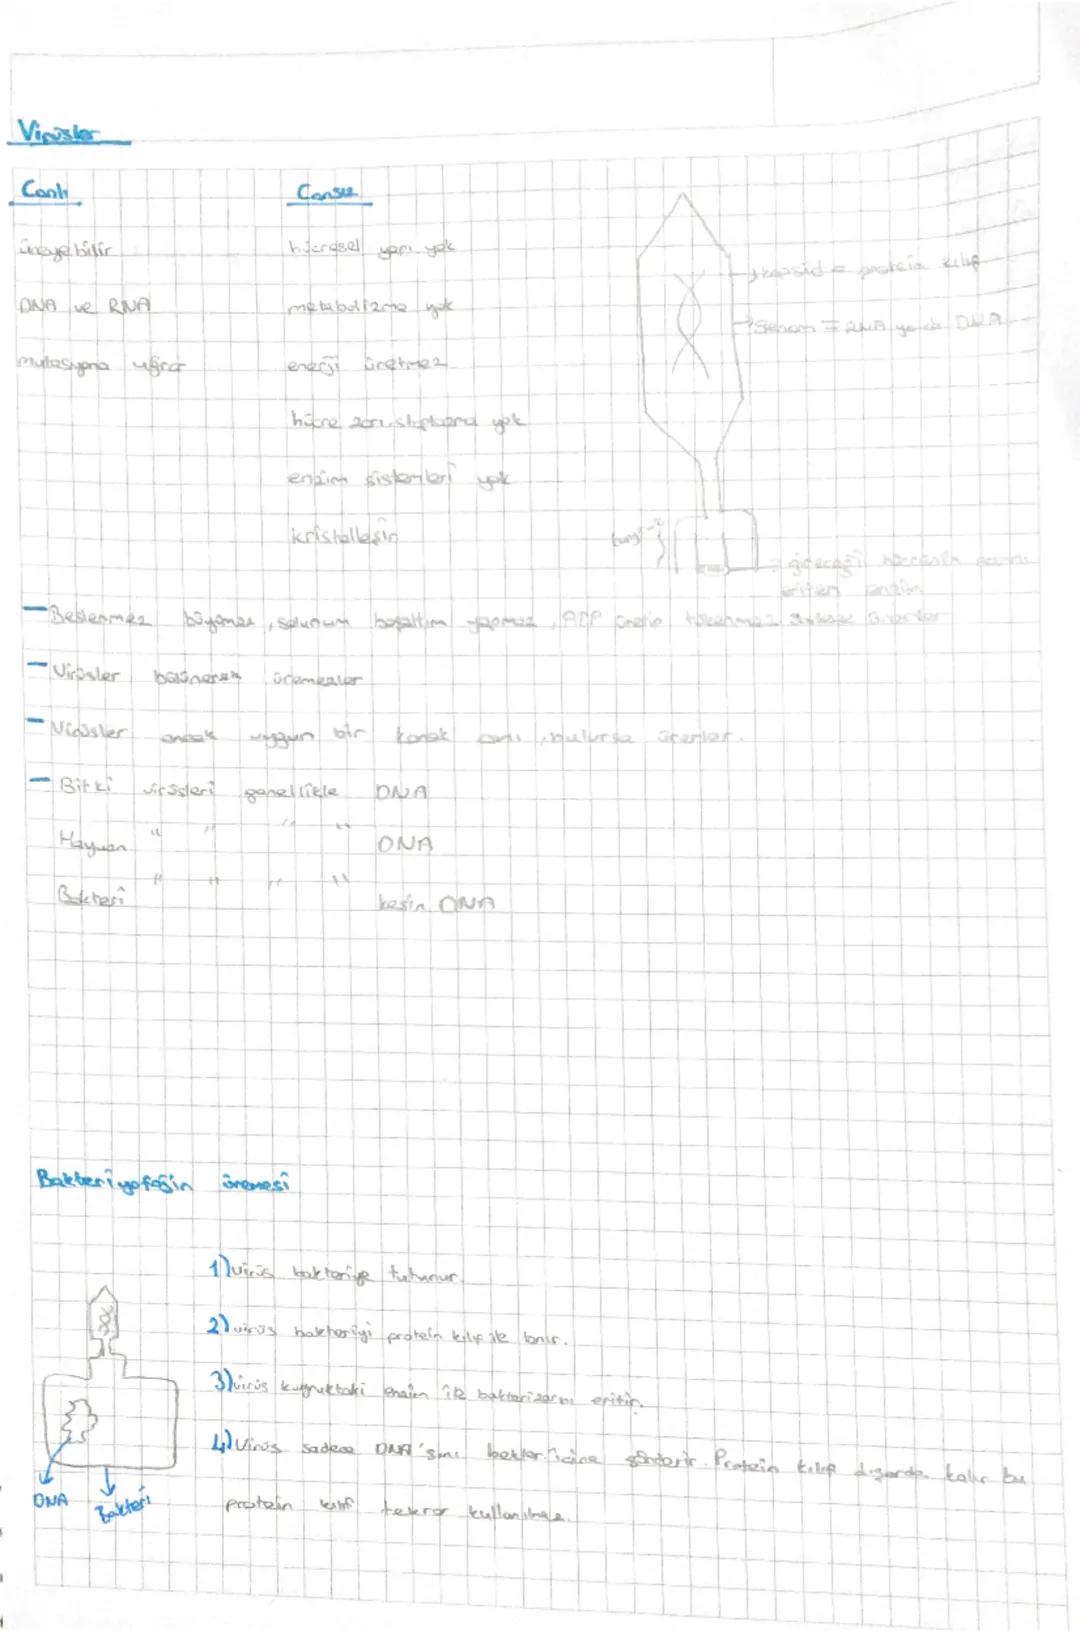 Virüsler
Canlı
Cansız
üreyebilir
hücresel yapı yok
kapsid = protein kılıf
DNA ve RNA
metabolizma yok
= RNA ya da DNA
mutasyona uğrar
enerji üretmez
hücre zarı, sitoplazma yok
enzim sistemleri yok
kristalleşir
gideceği hücrenin zarını
eriten enzim
- Beslenmez büyümez, solunum boşaltım yapmaz, ATP üretip tükenmez
- Virüsler bölünerek üremezler
- Virüsler ancak uygun bir konak canlı bulursa ürerler.
- Bitki virüsleri genellikle DNA
Hayvan " " " " DNA
Bakteri " " " " kesin DNA
Bakteriyofajın üremesi
1) virüs bakteriye tutunur.
2) virüs bakteriyi protein kılıf ile tanır.
3) virüs kuyruktaki enzim ile bakteri zarını eritir.
4) Virüs sadece DNA'sını bakteri içine gönderir. Protein kılıf dışarda kalır bu
protein kılıf tekrar kullanılmaz.
DNA
Bakteri